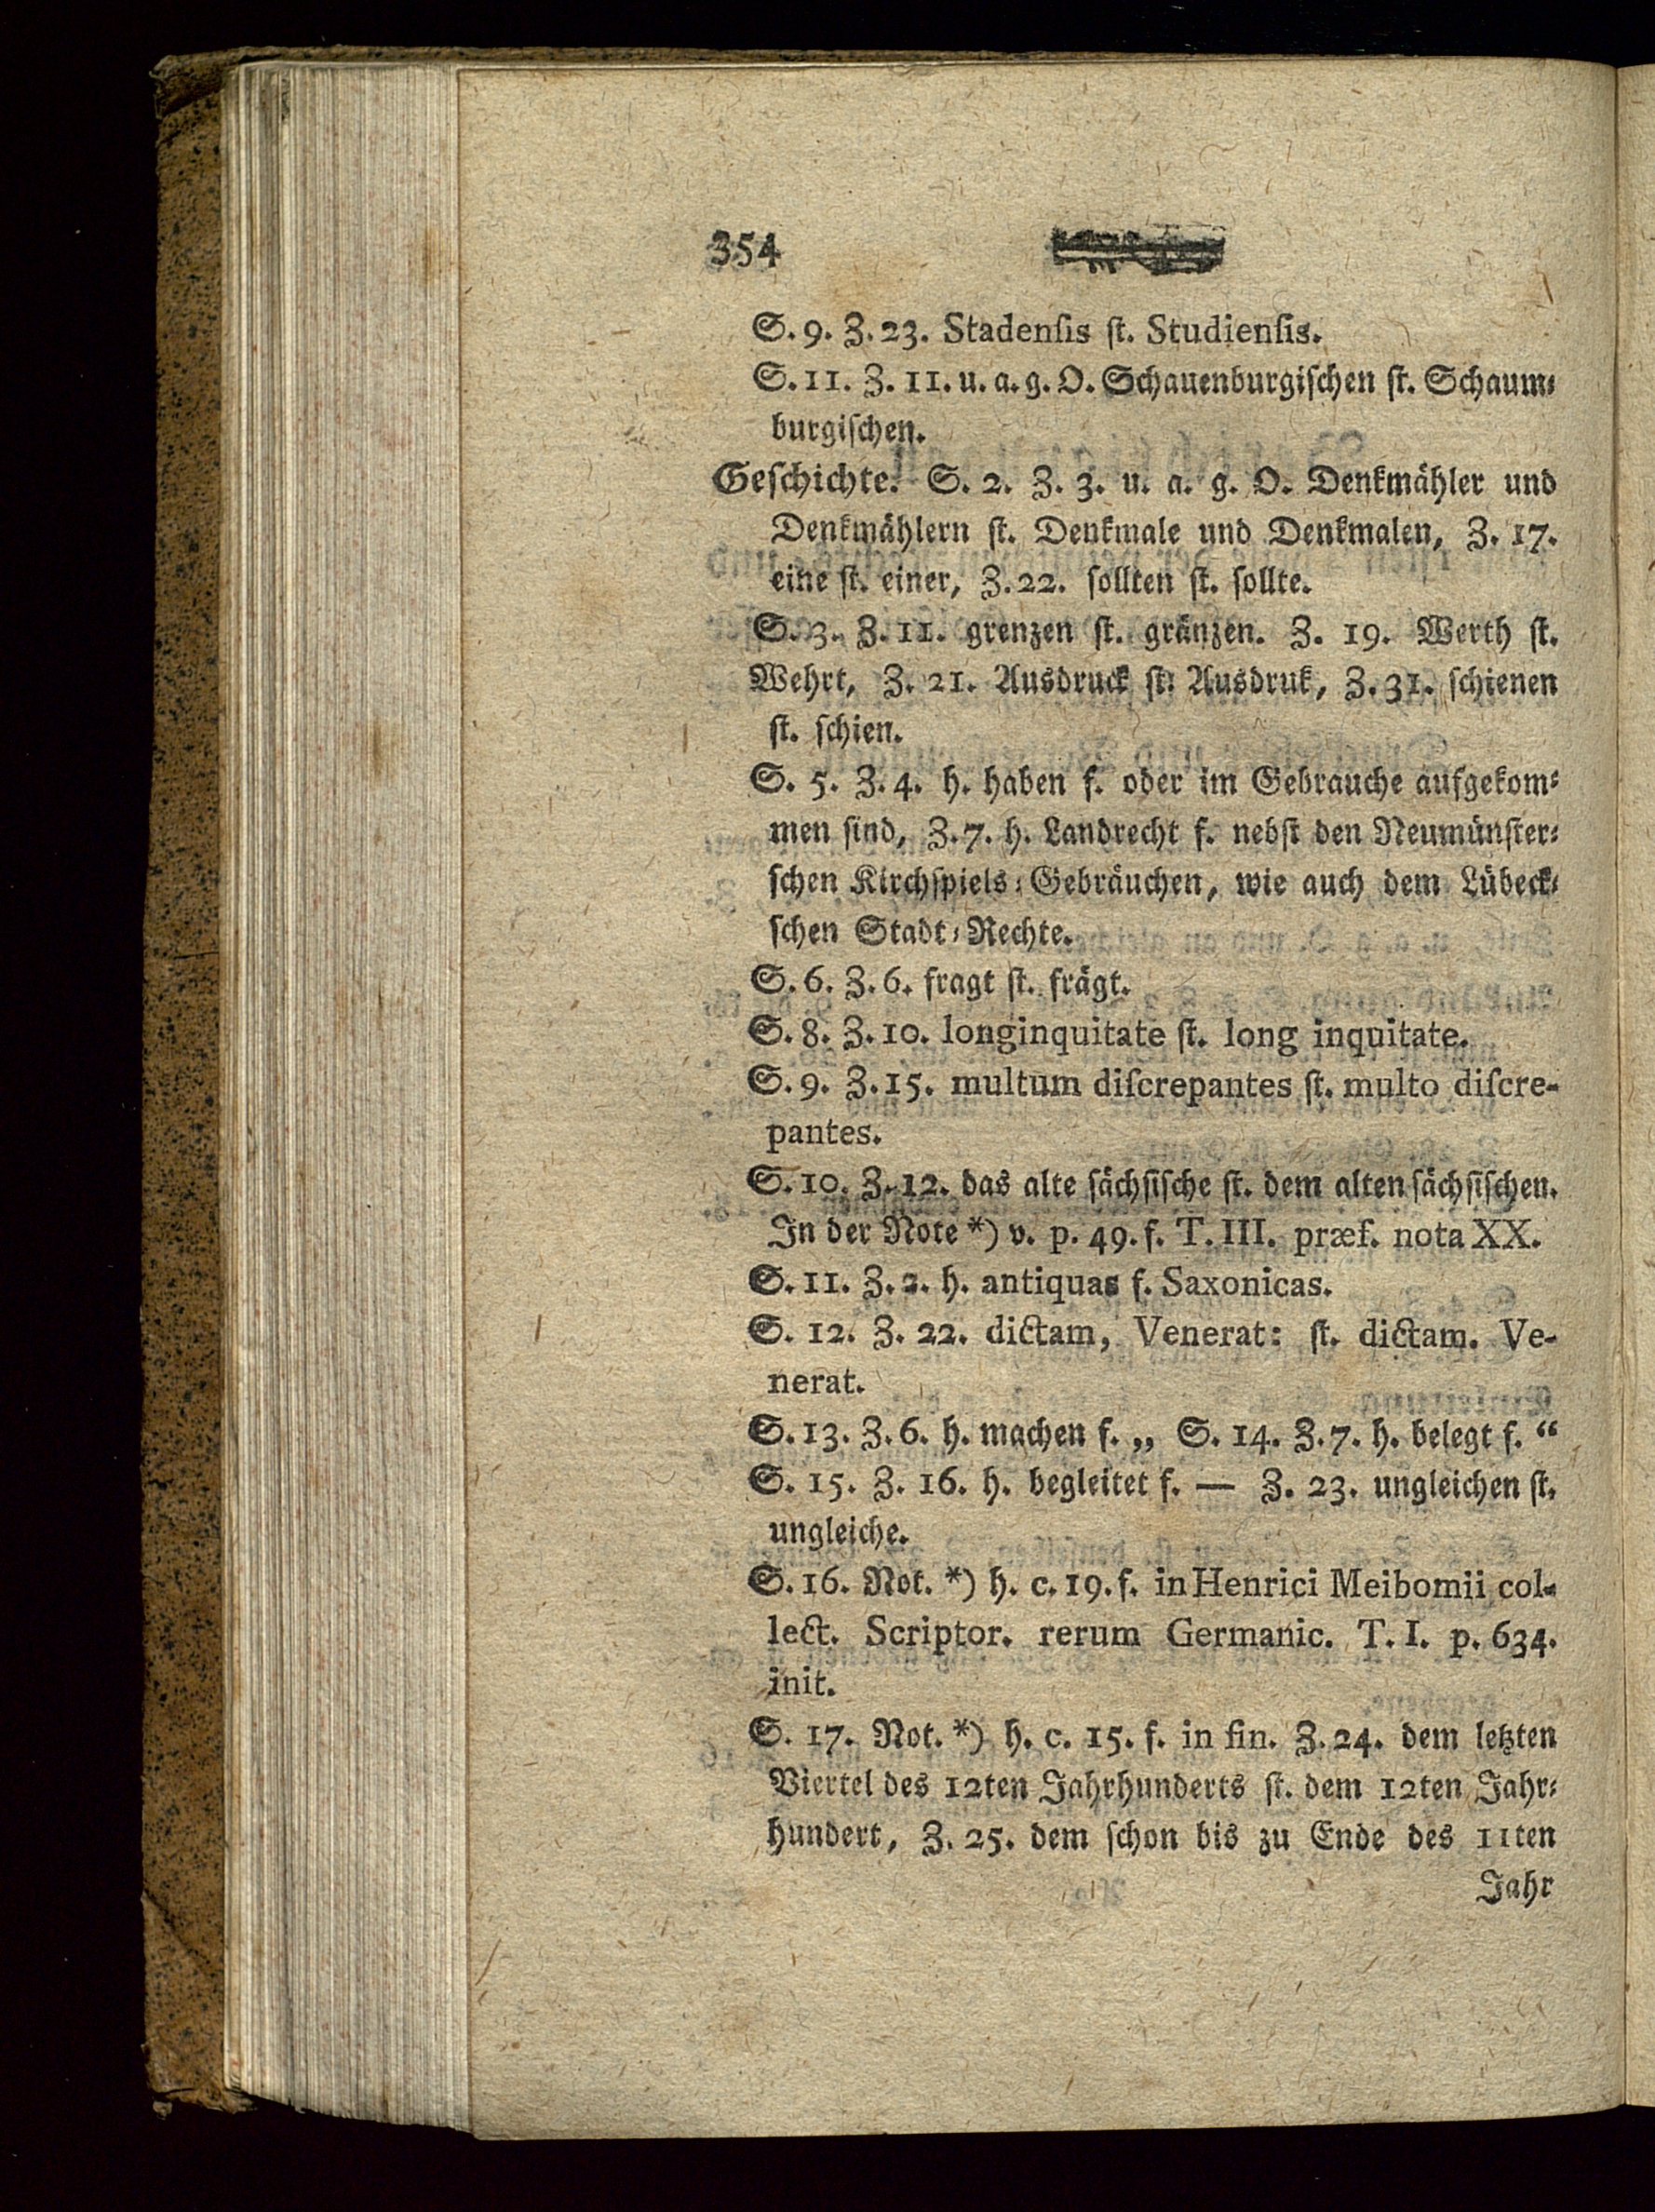 354
S. 9. Z. 23. Stadenſis ſt. Studienſis.
S. 11. Z. 11. u. a. g. O. Schauenburgiſchen ſt. Schaum⸗
burgiſchen.
Geſchichte. S. 2. Z. 3. u. a. g. O. Denkmähler und
Denkmählern ſt. Denkmale und Denkmalen, Z. 17.
eine ſt. einer, Z. 22. ſollten ſt. ſollte.
S. 3. Z. 11. grenzen ſt. gränzen. Z. 19. Werth ſt.
Wehrt, Z. 21. Ausdruck ſt. Ausdruk, Z. 31. ſchienen
ſt. ſchien.
S. 5. Z. 4. h. haben ſ. oder im Gebrauche aufgekom⸗
men ſind, Z. 7. h. Landrecht ſ. nebſt den Neumünſter⸗
ſchen Kirchſpiels⸗Gebräuchen, wie auch dem Lübeck⸗
ſchen Stadt⸗Rechte.
S. 6. Z. 6. fragt ſt. frägt.
S. 8. Z. 10. longinquitate ſt. long inquitate.
S. 9. Z. 15. multum diſcrepantes ſt. multo diſcre-
pantes.
S. 10. Z. 12. das alte ſächſiſche ſt. dem alten ſächſiſchen.
In der Note *) v. p. 49. ſ. T. III. præf. nota XX.
S. 11. Z. 2. h. antiquas ſ. Saxonicas.
S. 12. Z. 22. dictam, Venerat: ſt. dictam. Ve-
nerat.
S. 13. Z. 6. h. machen ſ. „ S. 14. Z. 7. h. belegt ſ. “
S. 15. Z. 16. h. begleitet ſ. — Z. 23. ungleichen ſt.
ungleiche.
S. 16. Not. *) h. c. 19. ſ. in Henrici Meibomii col-
lect. Scriptor. rerum Germanic. T. I. p. 634.
init.
S. 17. Not. *) h. c. 15. ſ. in fin. Z. 24. dem letzten
Viertel des 12ten Jahrhunderts ſt. dem 12ten Jahr⸗
hundert, Z. 25. dem ſchon bis zu Ende des 11ten
Jahr